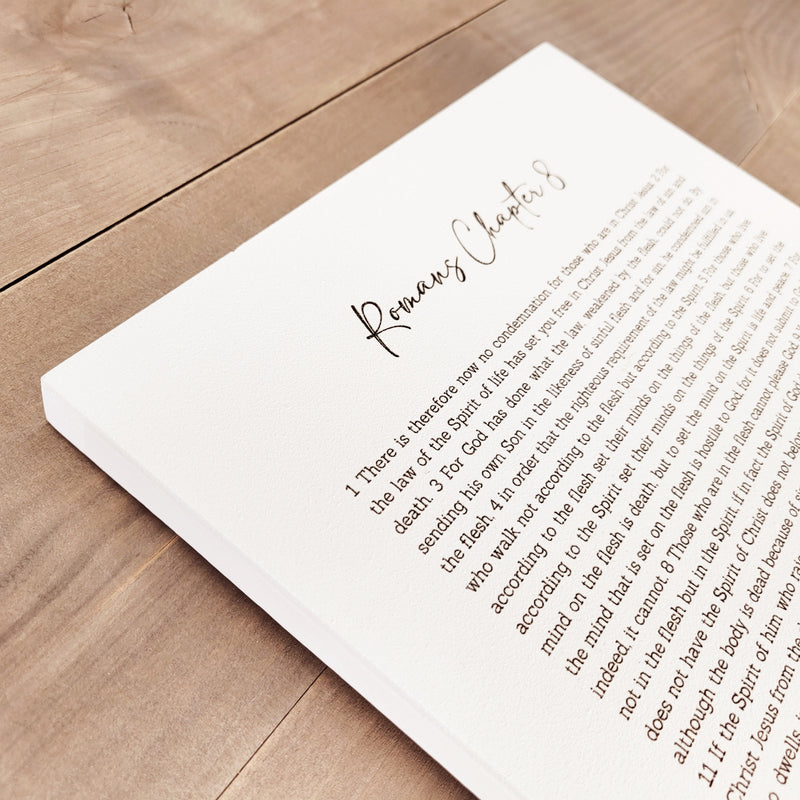 Romans Chapter 8
1 There is therefore now no condemnation for those who are in Christ Jesus. 2 For
the law of the Spirit of life has set you free in Christ Jesus from the law of sin and
death. 3 For God has done what the law, weakened by the flesh, could not do. By
sending his own Son in the likeness of sinful flesh and for sin, he condemned sin in
the flesh, 4 in order that the righteous requirement of the law might be fulfilled in us,
who walk not according to the flesh but according to the Spirit. 5 For those who live
according to the flesh set their minds on the things of the flesh, but those who live
according to the Spirit set their minds on the things of the Spirit. 6 For to set the
mind on the flesh is death, but to set the mind on the Spirit is life and peace. 7 For
the mind that is set on the flesh is hostile to God, for it does not submit to
indeed, it cannot. 8 Those who are in the flesh cannot please God. 9
not in the flesh but in the Spirit, if in fact the Spirit of God
does not have the Spirit of Christ does not belong
although the body is dead because of
11 If the Spirit of him who
Christ Jesus from the
dwells